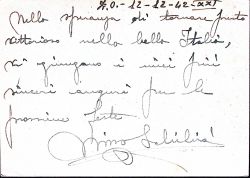 A.O. - 12-12-42-XXI
Nella speranza di tornare presto
vittorioso nella bella Italia,
vi giungano i miei più
sinceri auguri per le
prossime feste